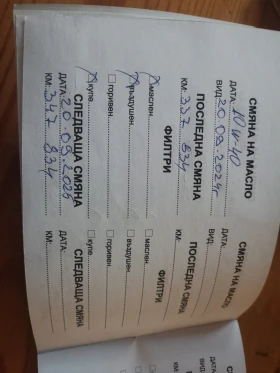 СМЯНА НА МАСЛО
ДАТА: 10W-40
ВИД: 20.09.2024г
ПОСЛЕДНА СМЯНА
КМ: 337 834
ФИЛТРИ
маслен
въздушен
горивен
купе
СЛЕДВАЩА СМЯНА
ДАТА: 20.09.2025
КМ: 347 834
СМЯНА НА МАСЛО
ДАТА:
ВИД:
ПОСЛЕДНА СМЯНА
КМ:
ФИЛТРИ
маслен
въздушен
горивен
купе
СЛЕДВАЩА СМЯНА
ДАТА:
КМ: